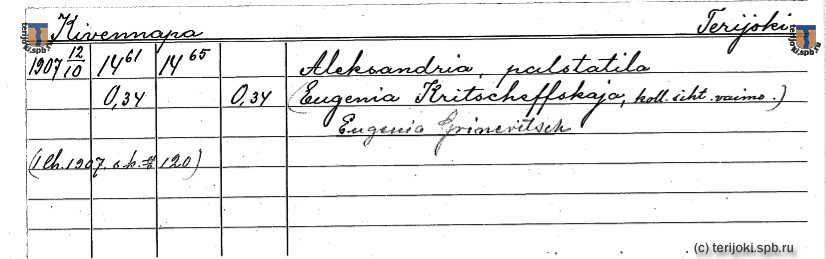 Kivennapa Terijoki
1907 12/10 14 61 14 65 Aleksandria, palstatila
0,34 0,34 (Eugenia Kritscheffskaja, koll. siht. vaimo.)
Eugenia Grinevitsch
1907 120)
(c) terijoki.spb.ru